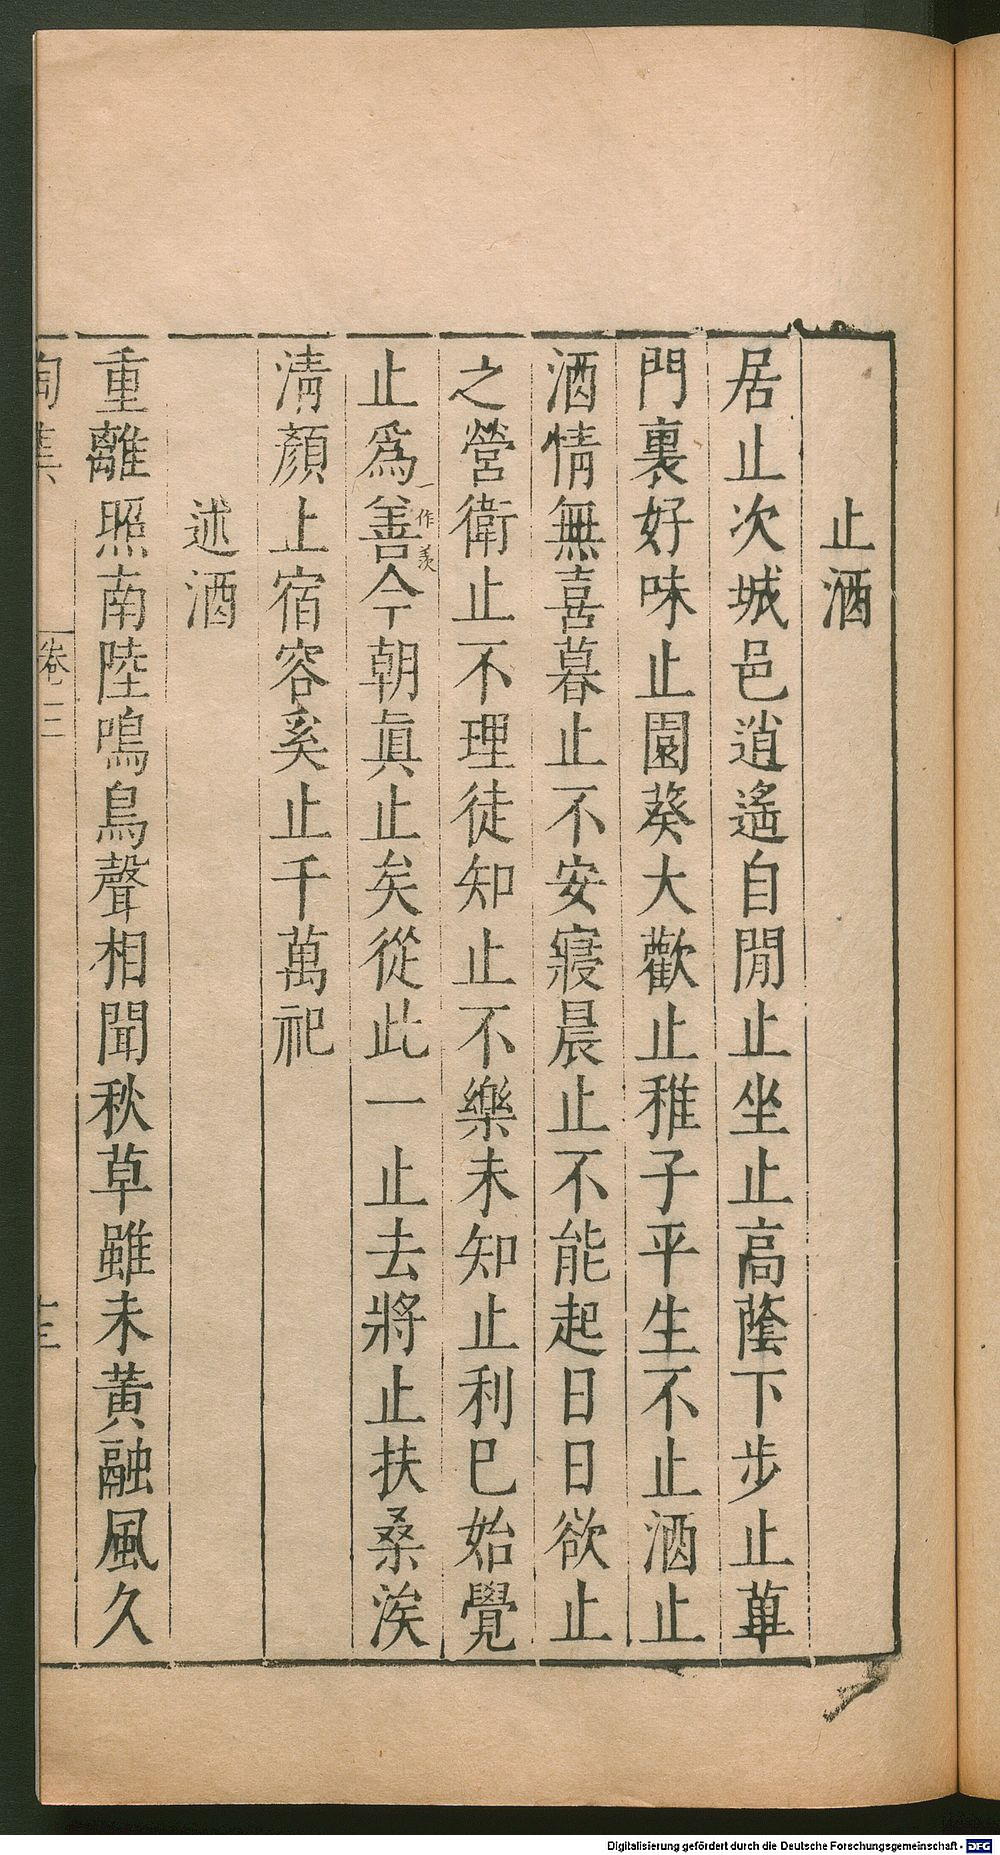 止酒
居止次城邑逍遙自閒止坐止高蔭下步止蓽
門裏好味止園葵大歡止稚子平生不止酒止
酒情無喜暮止不安寢晨止不能起日日欲止
之營衛止不理徒知止不樂未知止利巳始覺
止爲善一作羨今朝眞止矣從此一止去將止扶桑涘
淸顏止宿容奚止千萬祀
述酒
重離照南陸鳴鳥聲相聞秋草雖未黃融風久
卷三
Digitalisierung gefördert durch die Deutsche Forschungsgemeinschaft - DFG